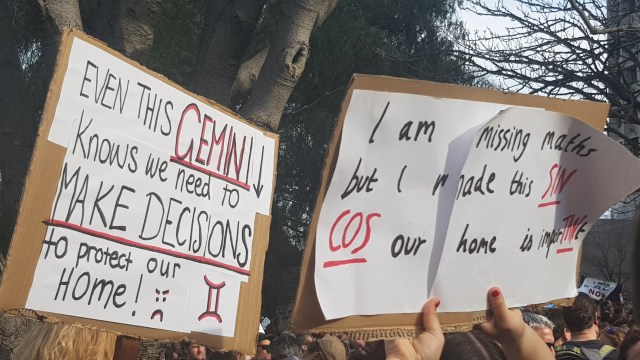 EVEN THIS GEMINI ↓
Knows we need to
MAKE DECISIONS
to protect our
Home! ♊
I am missing maths
but I made this SIN
COS our home is imporTANT
NOW